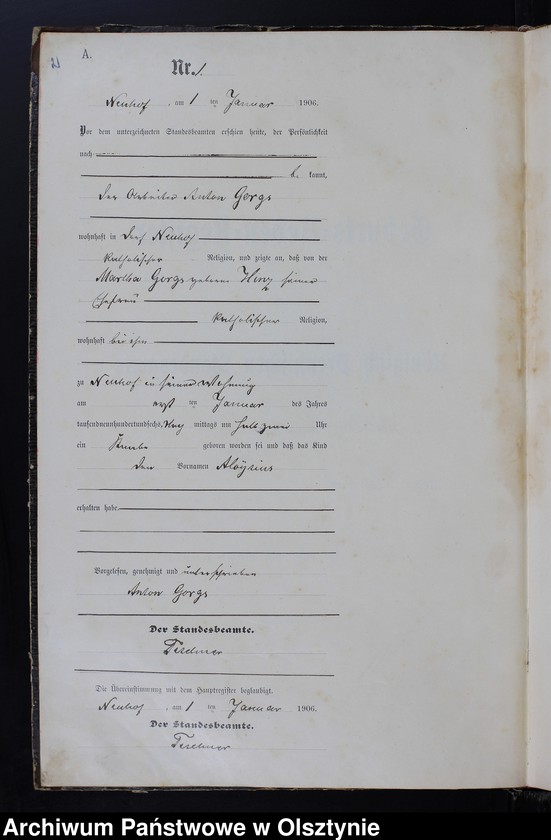 21
A.
Nr. 1.
Neuhof, am 1 ten Januar 1906.
Vor dem unterzeichneten Standesbeamten erschien heute, der Persönlichkeit
nach
be kannt,
der Arbeiter Anton Gorgs
wohnhaft in Dorf Neuhof
katholischer Religion, und zeigte an, daß von der
Martha Gorgs geborene Hinz seiner
Ehefrau
katholischer Religion,
wohnhaft bei ihm
zu Neuhof in seiner Wohnung
am erst ten Januar des Jahres
tausendneunhundertundsechs, Nach mittags um halb zwei Uhr
ein Knabe geboren worden sei und daß das Kind
den Vornamen Aloysius
erhalten habe.
Vorgelesen, genehmigt und unterschrieben
Anton Gorgs
Der Standesbeamte.
Die Übereinstimmung mit dem Hauptregister beglaubigt.
Neuhof, am 1 ten Januar 1906.
Der Standesbeamte.
Archiwum Państwowe w Olsztynie